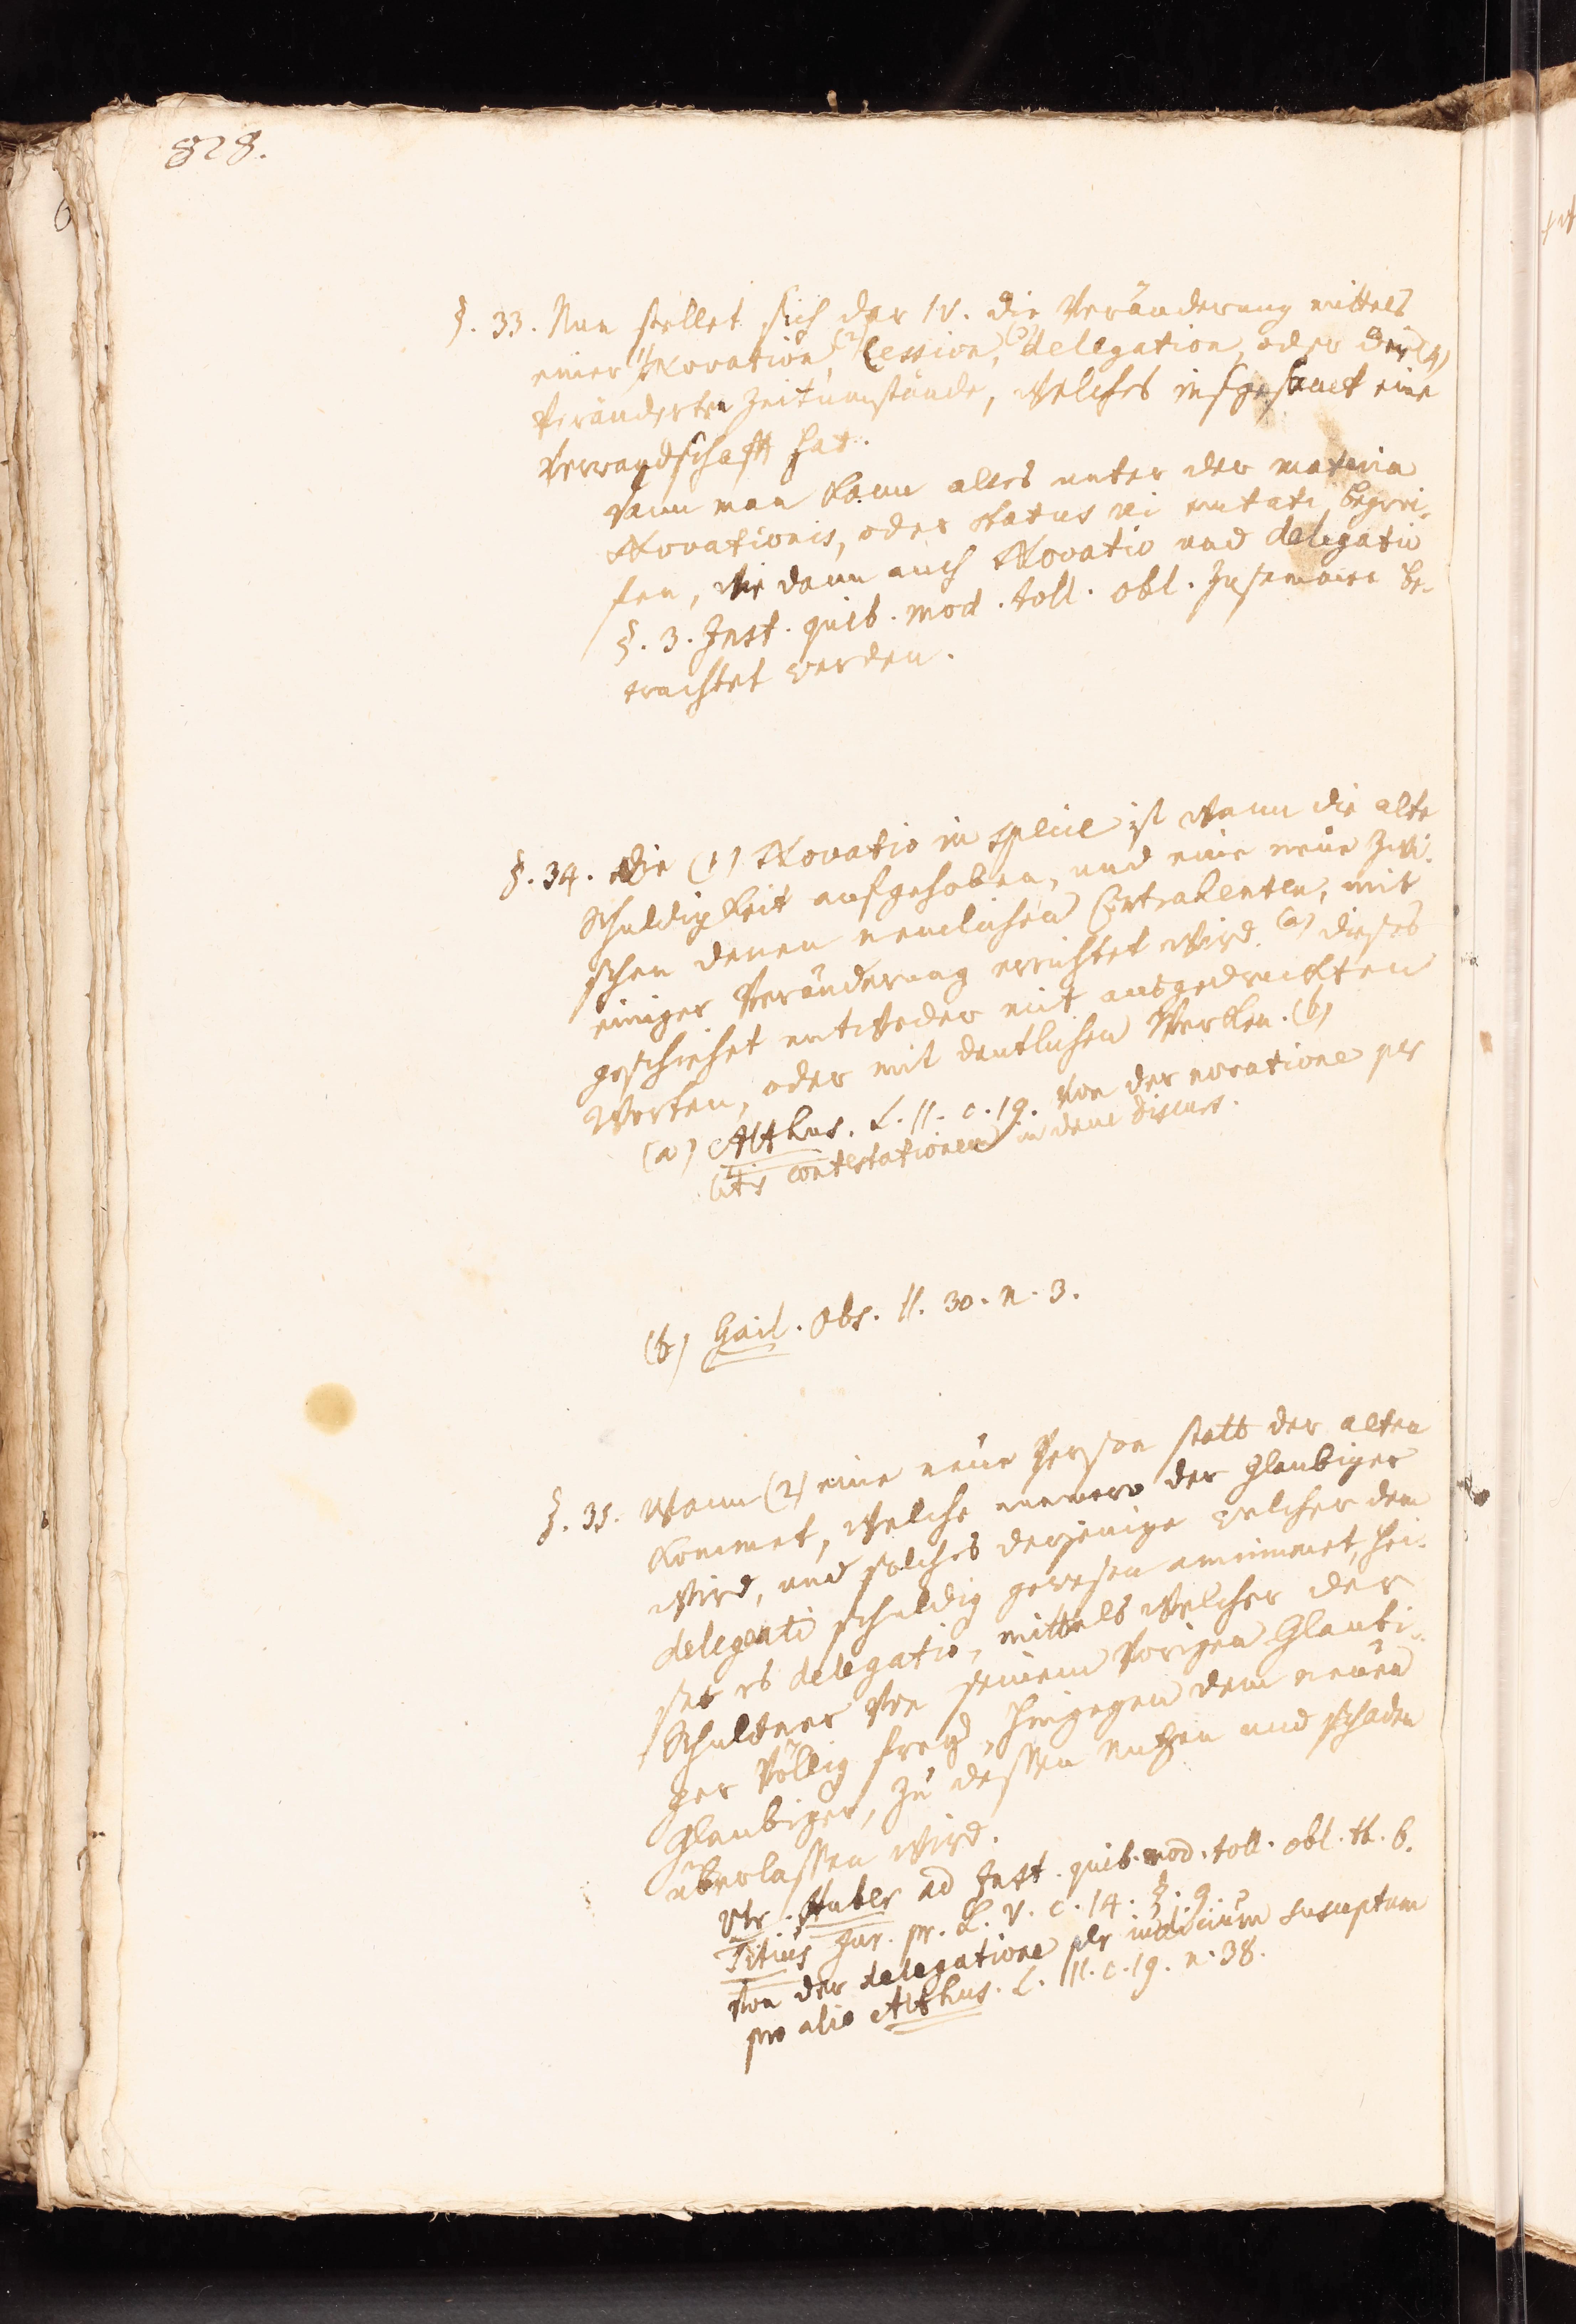 828.
§. 33. Nun stellet sich dar IV. die Veränderung mittels
einer (1) Novation, (2) Cession, (3) delegation, oder der (4)
Veränderten Zeitumstände, welches insgesamt eine
Verwandschafft hat.
dann man kann alles unter der materia
Novationis, oder status rei mutati begrei-
fen, wie dann auch Novatio und delegatio
§. 3. Inst. quib. mod. toll. obl. Zusammen be-
trachtet werden.
§. 34. Die (1) Novatio in specie ist wann die alte
Schuldigkeit aufgehoben, und eine neue Zwi-
schen denen nemlichen Contrahenten, mit
einiger Veränderung errichtet wird. (a) dieses
geschiehet entweder mit ausgedruckten
Worten, oder mit deutlichen Werken. (b)
(a) Althus. L. II. c. 19. Von der novatione per
litis contestationem in dem discurs.
(b) Gail. Obs. II. 30. n. 3.
§. 35. Wann (2) eine neue Person statt der alten
kommet, welche nunmero der Glaubiger
wird, und solches derjenige welcher dem
deleganti schuldig gewesen annimmet, hei-
set es delegatio, mittels welcher der
Schuldner von seinem Vorigen Glaubi-
ger Völlig frey, hingegen dem neuen
Glaubiger, zu dessen nutzen und schaden
überlassen wird.
Utr. Huber ad Inst. quib. mod. toll. obl. th. 6.
Titius Jur. pr. L. V. c. 14. §. 9.
Von der delegatione per iudicium susceptum
pro alio Althus. L. III. c. 19. n. 38.